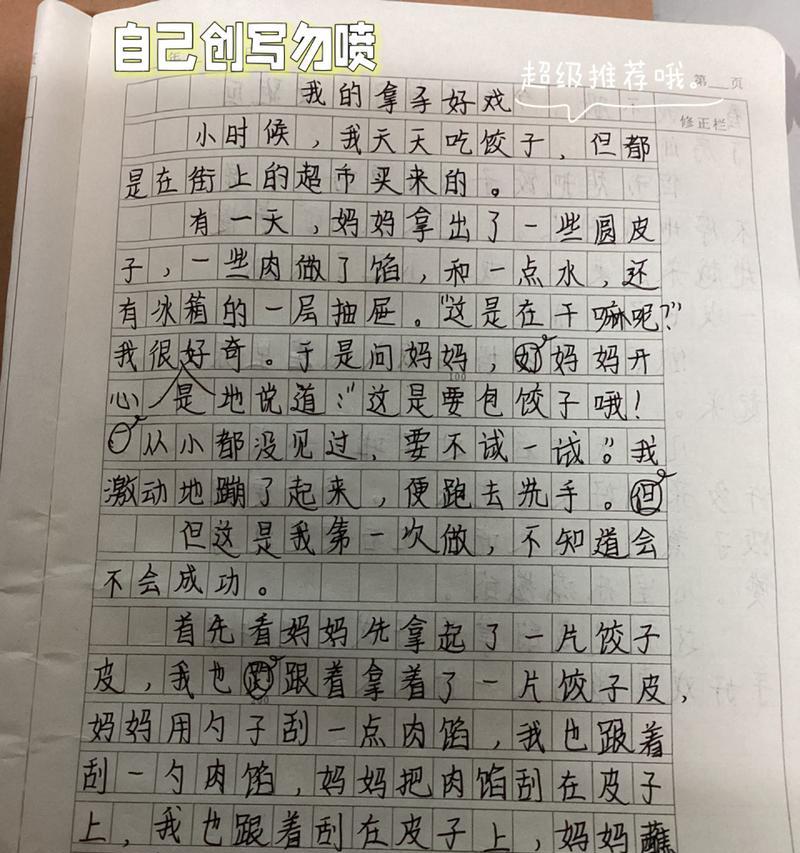 自己创写勿喷
超级推荐哦。
第 页
修正栏
我的拿手好戏
小时候，我天天吃饺子，但都
是在街上的超市买来的。
有一天，妈妈拿出了一些圆皮
子，一些肉做了馅，和一点水，还
有冰箱的一层抽屉。“这是在干嘛呢？”
我很好奇。于是问妈妈，妈妈开
心是地说道：“这是要包饺子哦！
从小都没见过，要不试一试。”我
激动地蹦了起来，便跑去洗手。
但这是我第一次做，不知道会
不会成功。
首先看妈妈先拿起了一片饺子
皮，我也跟着拿着了一片饺子皮，
妈妈用勺子刮一点肉馅，我也跟着
刮一勺肉馅，妈妈把肉馅刮在皮子
上，我也跟着刮在皮子上，妈妈蘸
100